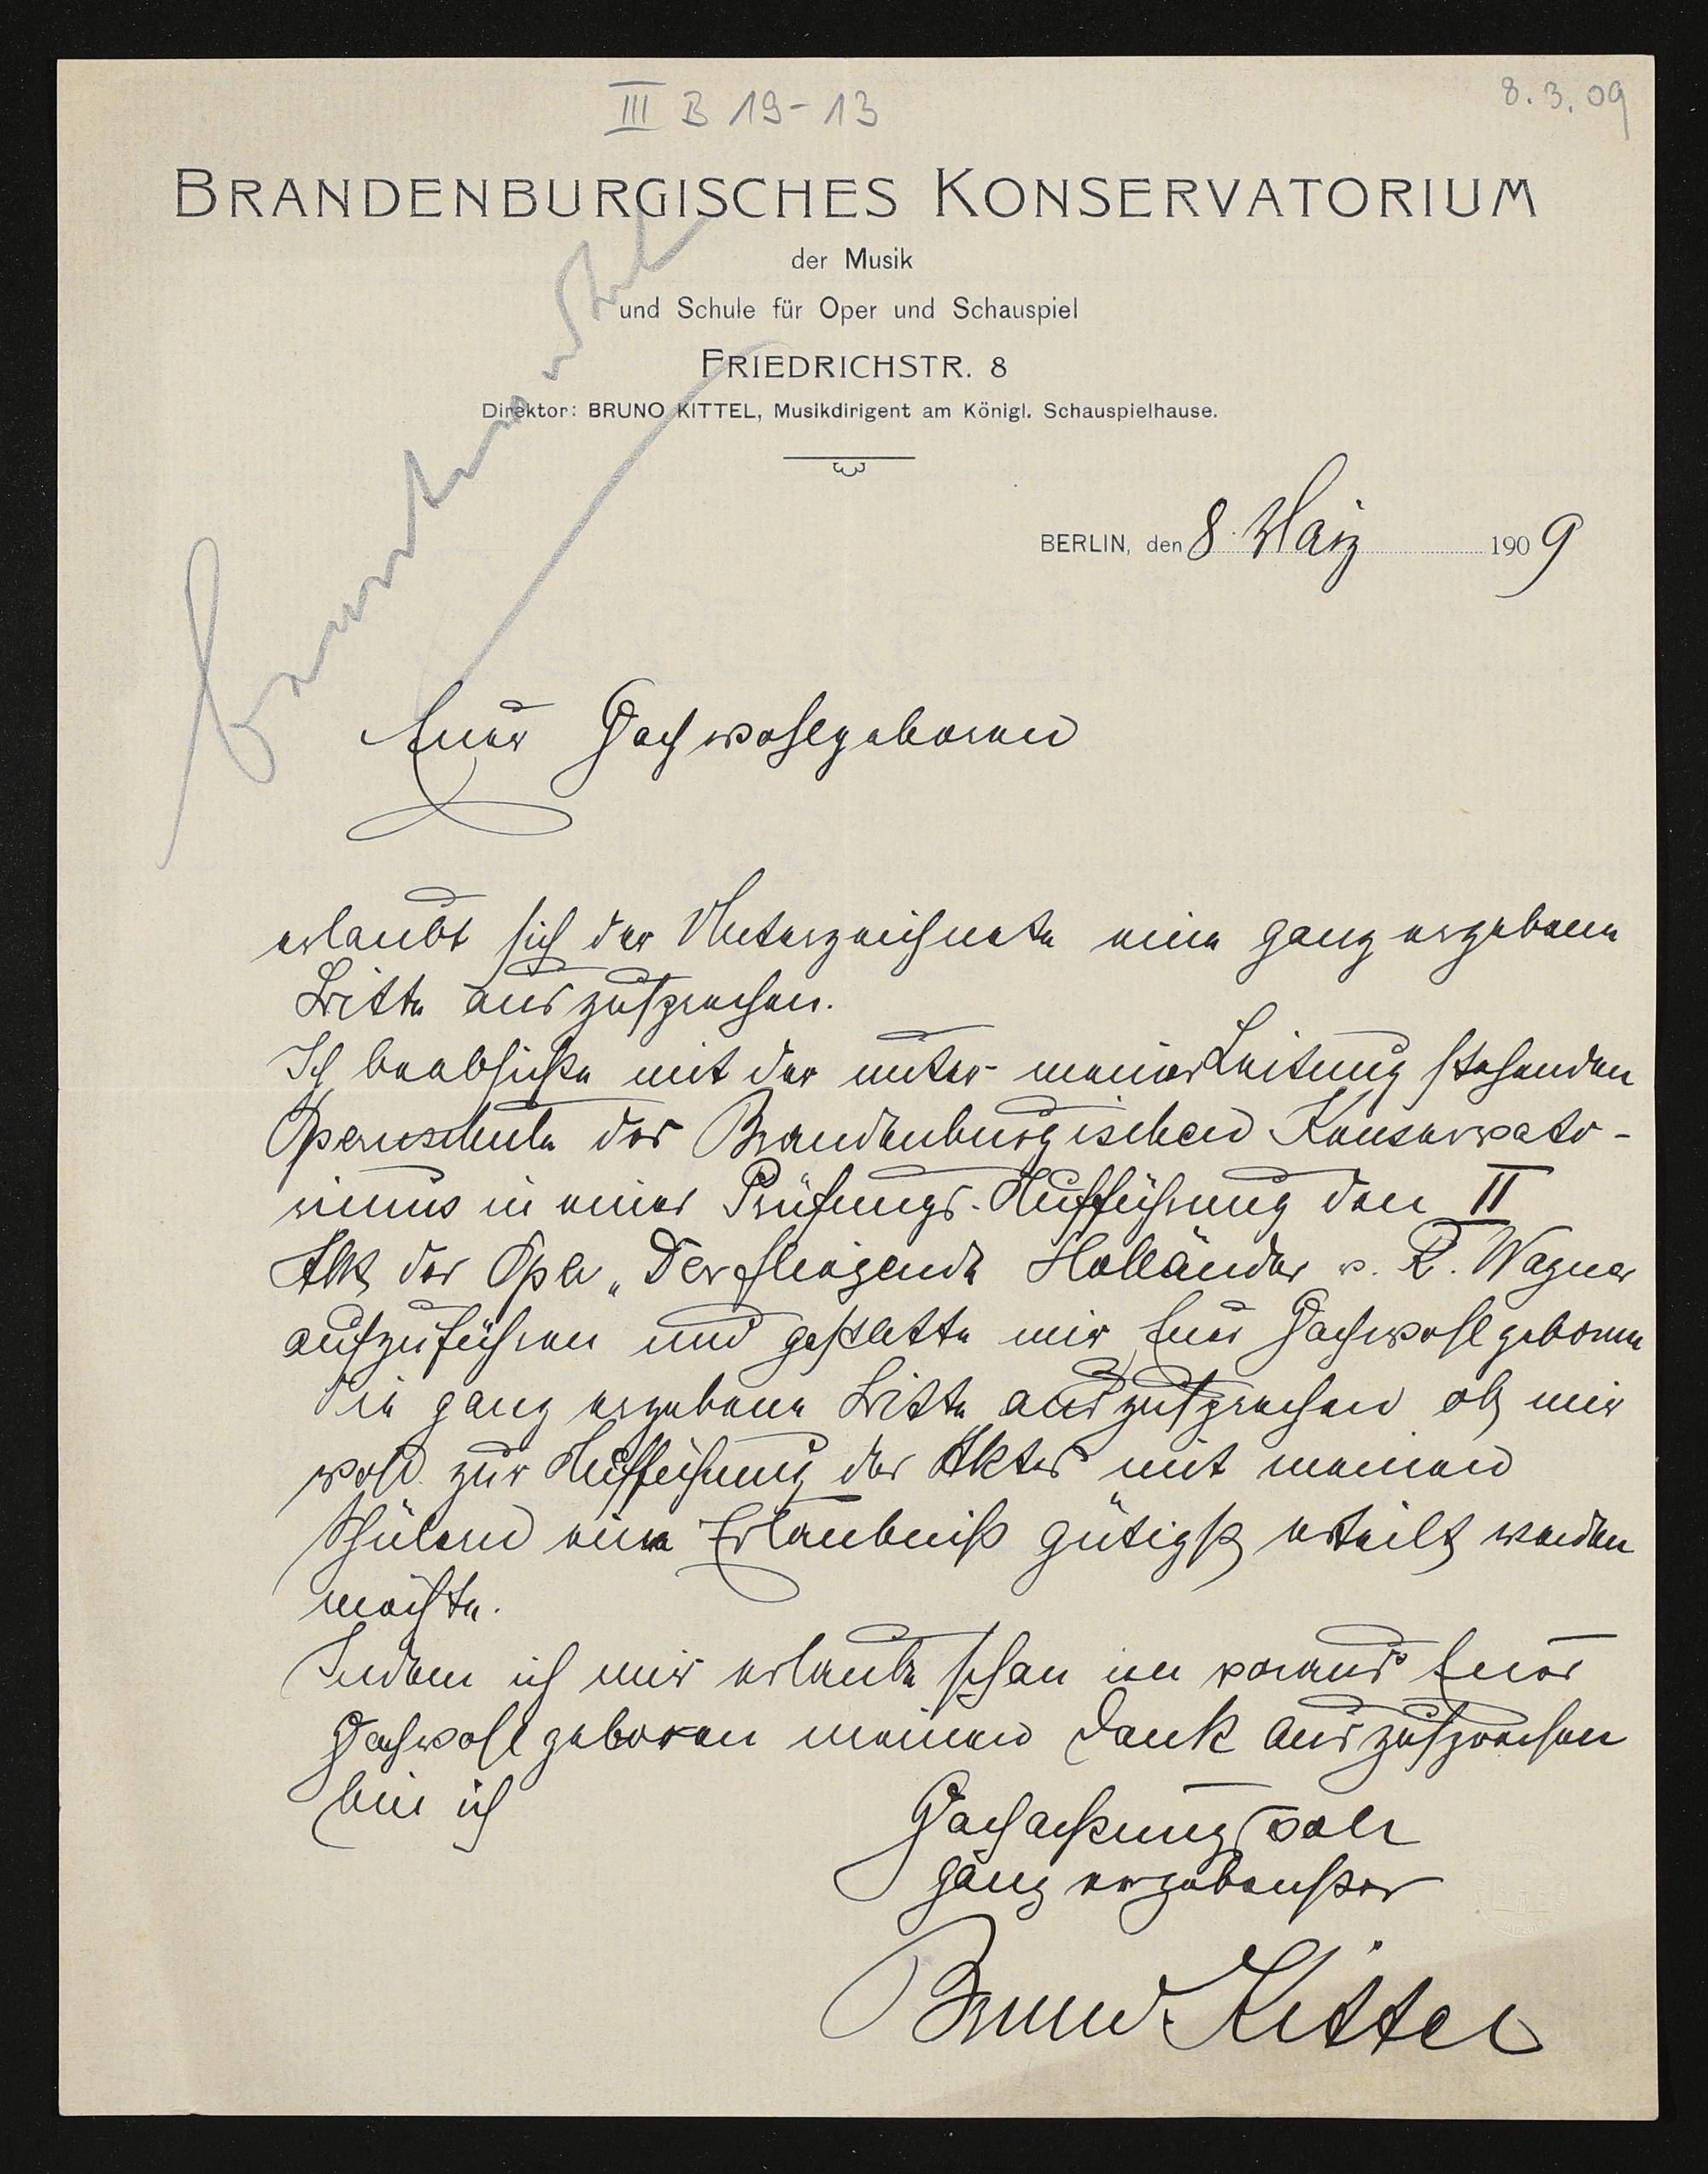 III B 19-13
8. 3. 09
BRANDENBURGISCHES KONSERVATORIUM
der Musik
und Schule für Oper und Schauspiel
FRIEDRICHSTR. 8
Direktor: BRUNO KITTEL, Musikdirigent am Königl. Schauspielhause.
BERLIN, den 8. März 1909
Euer Hochwohlgeboren
erlaubt sich der Unterzeichnete eine ganz ergebene
Bitte auszusprechen.
Ich beabsichte mit der unter meiner Leitung stehenden
Opernschule des Brandenburgischen Konservato-
riums in einer Prüfungs-Aufführung den II
Akt der Oper „Der fliegende Holländer v. R. Wagner
aufzuführen und gestatte mir Euer Hochwohlgeboren
die ganz ergebene Bitte auszusprechen ob mir
wohl zur Aufführung des Aktes mit meinen
Schülern eine Erlaubniß gütigst erteilt werden
möchte.
Indem ich mir erlaube schon im voraus Euer
Hochwohlgeboren meinen Dank auszusprechen
bin ich
Hochachtungsvoll
ganz ergebenster
Bruno Kittel